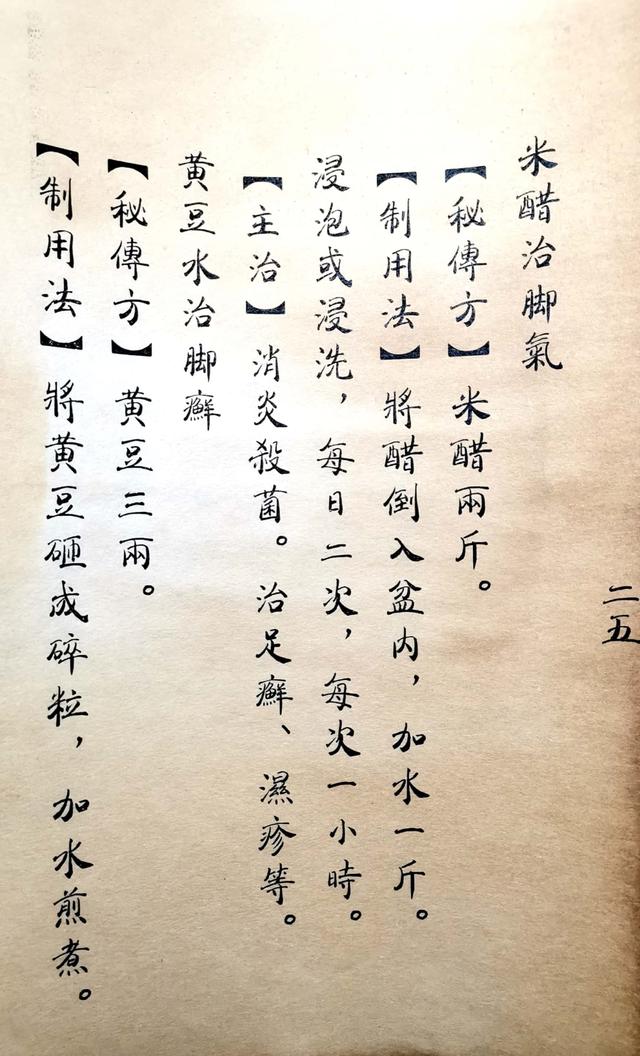 二五
米醋治脚氣
【秘傳方】米醋兩斤。
【制用法】將醋倒入盆内，加水一斤。
浸泡或浸洗，每日二次，每次一小時。
【主治】消炎殺菌。治足癬、濕疹等。
黄豆水治脚癬
【秘傳方】黄豆三兩。
【制用法】將黄豆砸成碎粒，加水煎煮。